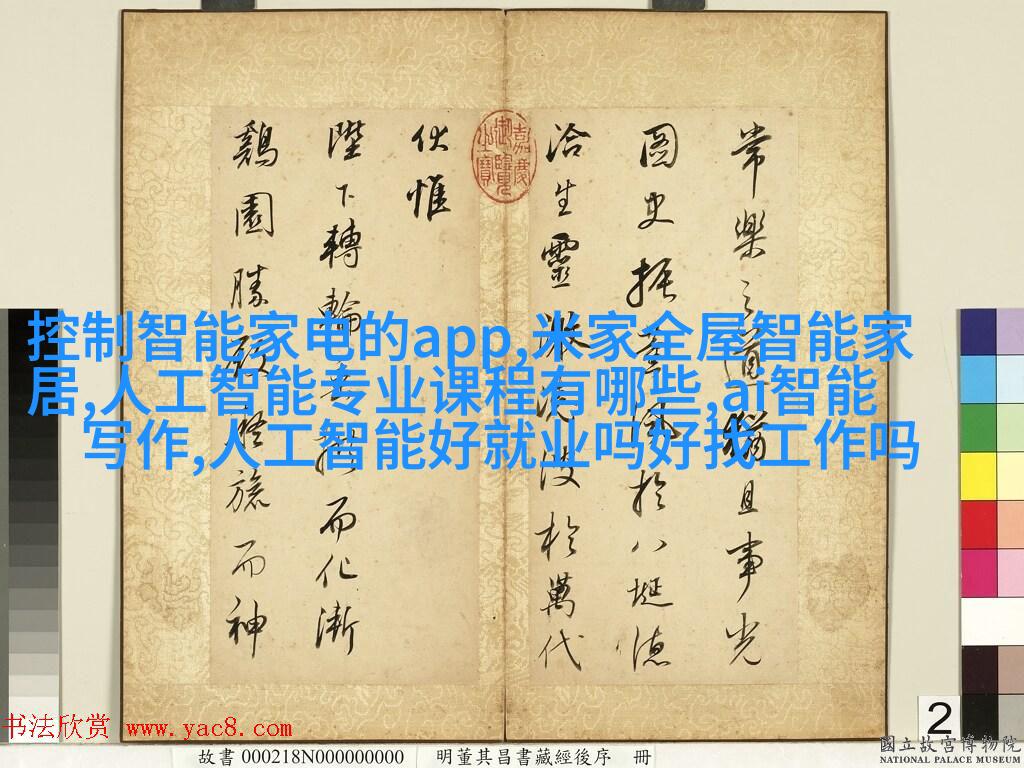 常樂之道猶且事光
圖史振皇風於八埏德
洽生靈激流波於萬代
伏惟
陛下轉輪而化漸
鷄園勝旒而神
嘉慶御覽之寶
控制智能家电的app,米家全屋智能家
居,人工智能专业课程有哪些,ai智能
写作,人工智能好就业吗好找工作吗
2
书法欣赏 www.yac8.com
故書 000218N000000000 明董其昌書藏經後序 冊
國立故宮博物院
NATIONAL PALACE MUSEUM